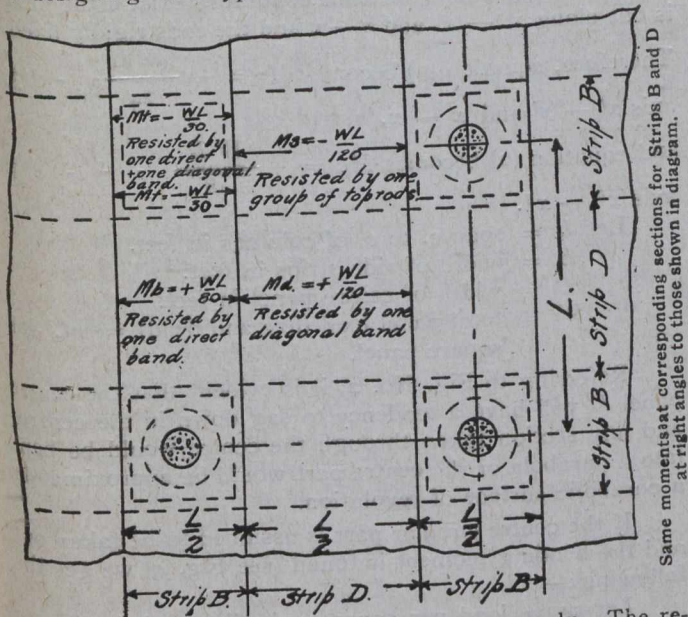 Mt = - WL
30.
Resisted by
one direct
+one diagonal
band.
Mt = - WL
30
Ms = - WL
120
Resisted by one
group of toprods
Mb = + WL
80
Resisted by
one direct
band.
Md. = + WL
120
Resisted by one
diagonal band
L.
Strip B
Strip D
Strip B
L
2
L
2
L
2
Strip B.
Strip D.
Strip B
Same moments at corresponding sections for Strips B and D
at right angles to those shown in diagram.
The re-